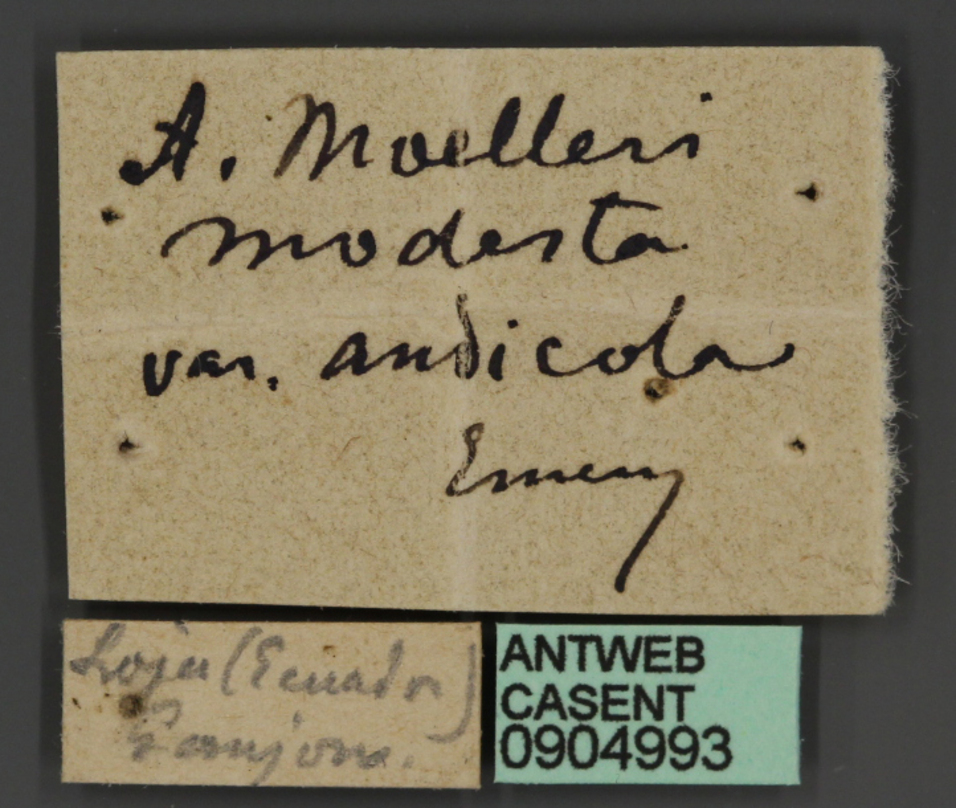 A. Moelleri
modesta
var. andicola
Emery
Loja (Ecuador)
ANTWEB
CASENT
0904993